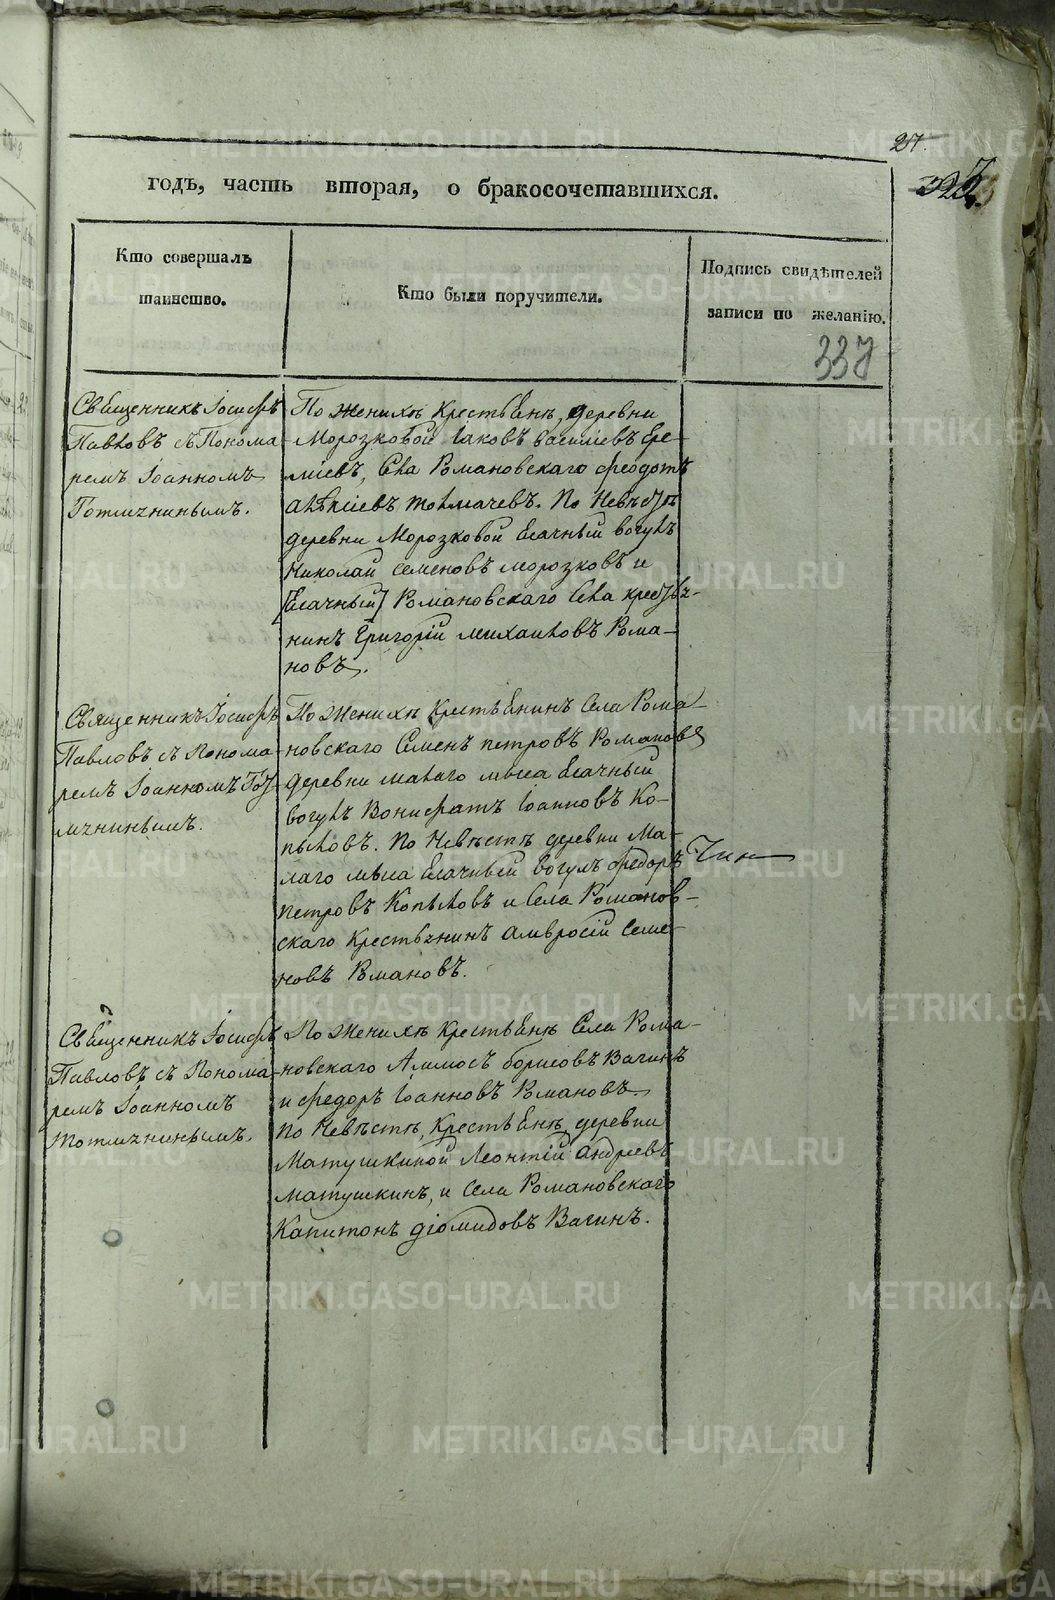 27.
325
годъ, часть вторая, о бракосочетавшихся.
Кто совершалъ таинство.
Кто были поручители.
Подпись свидѣтелей записи по желанію.
337
Священникъ Іосифъ
Павловъ съ Понома-
ремъ Іоанномъ
Тотмѧнинымъ.
По Женихѣ Крестьѧнѣ, деревни
Морозковой Іаковъ Василіевъ Ере-
міевъ, Села Романовскаго Феодотъ
Алѣксіевъ Толмачевъ. По Невѣстѣ
деревни Морозковой Ясачный вогулъ
Николай Семеновъ Морозковъ и
[Ясачный] Романовскаго Села крестьѧ-
нинъ Григорій Михаиловъ Рома-
новъ.
Священникъ Іосифъ
Павловъ съ Понома-
ремъ Іоанномъ Тот-
мѧнинымъ.
По Женихѣ Крестьѧнинъ Села Рома-
новскаго Семенъ Петровъ Романовъ
деревни Малаго мыса Ясачный
вогулъ Вонифатъ Іоанновъ Ко-
пыловъ. По Невѣстѣ деревни Ма-
лаго мыса Ясачный вогулъ Федоръ
Петровъ Копыловъ и Села Романов-
скаго Крестьѧнинъ Амвросій Семе-
новъ Романовъ.
Священникъ Іосифъ
Павловъ съ Понома-
ремъ Іоанномъ
Тотмѧнинымъ.
По Женихѣ Крестьѧнѣ Села Рома-
новскаго Аммосъ Борисовъ Вагинъ
и Федоръ Іоанновъ Романовъ
По Невѣстѣ, Крестьѧнѣ деревни
Матушкиной Леонтій Андреевъ
Матушкинъ, и Села Романовскаго
Капитонъ Діомидовъ Вагинъ.
METRIKI.GASO-URAL.RU